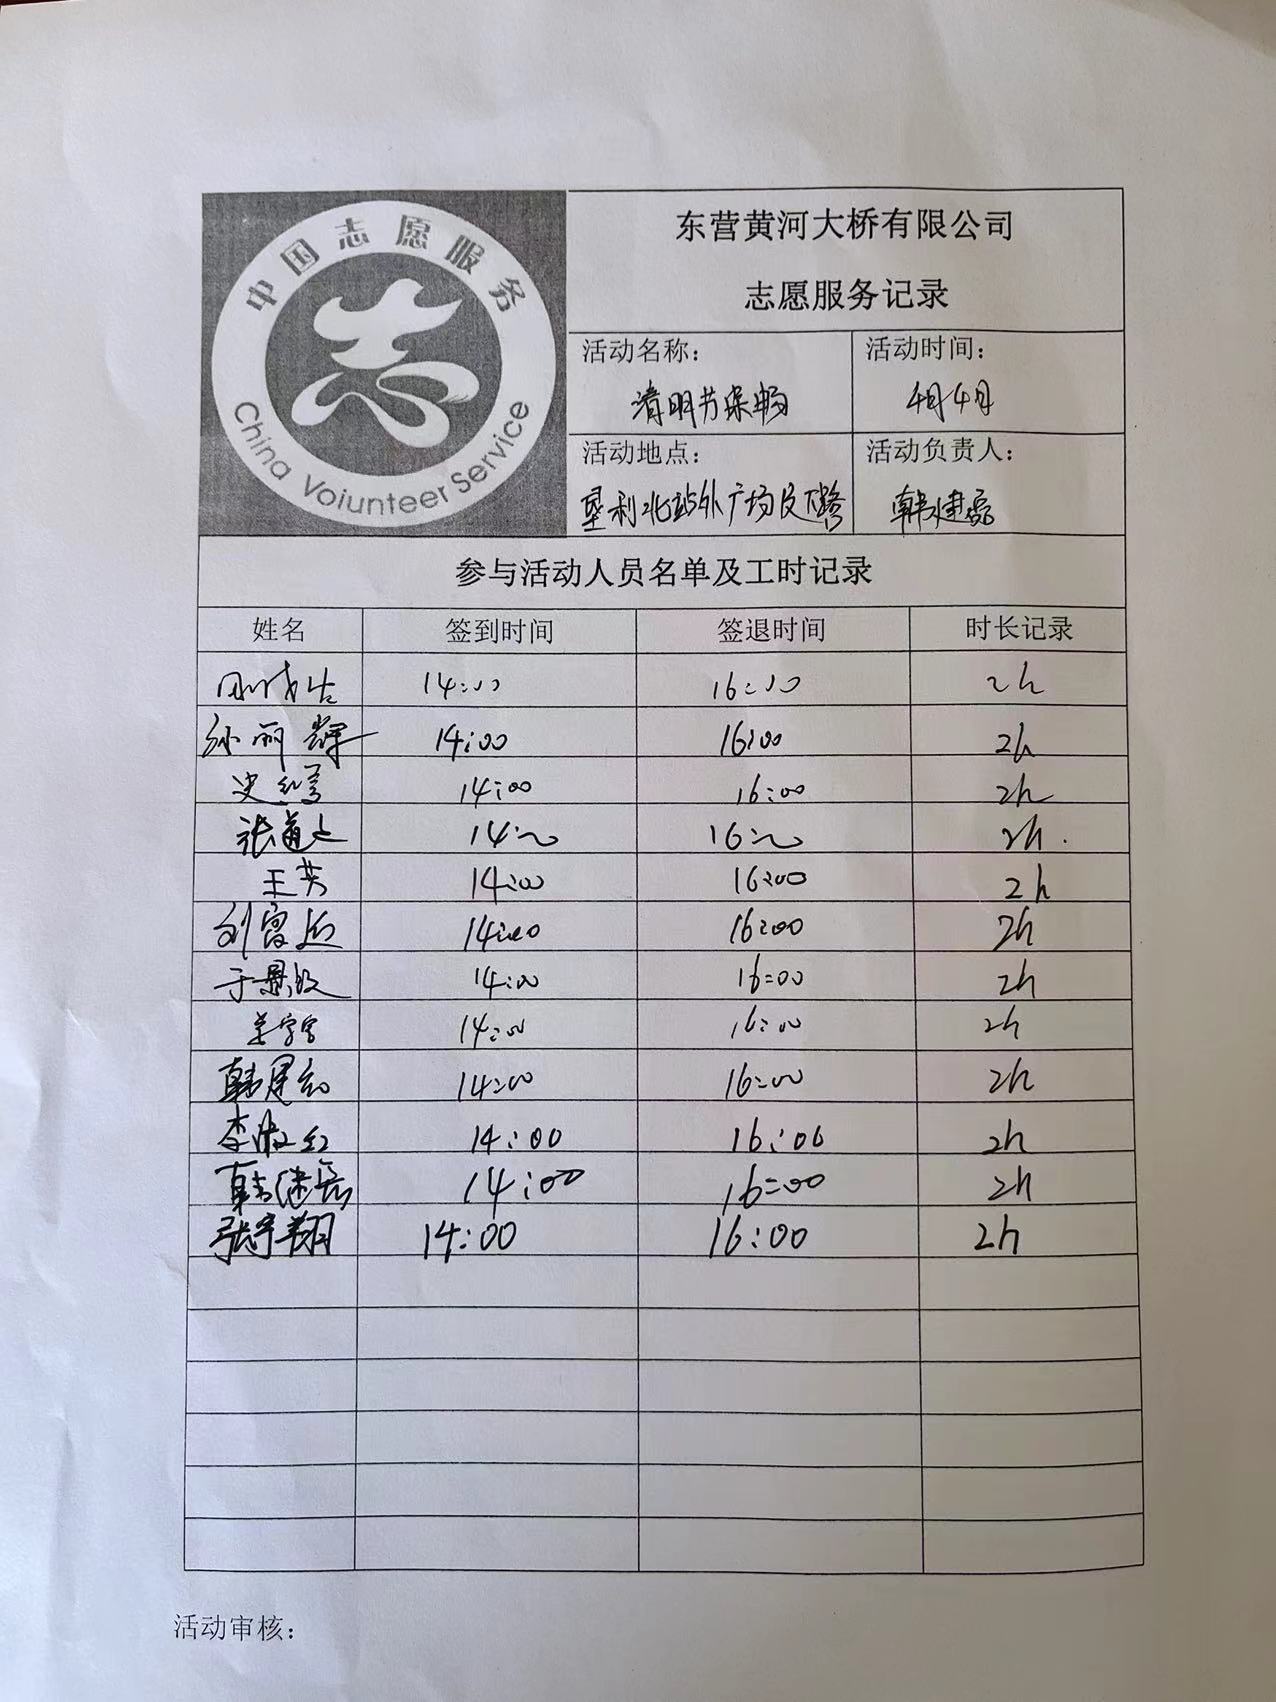 中国志愿服务
China Voiunteer Service
东营黄河大桥有限公司
志愿服务记录
活动名称： 活动时间：
清明节保畅 4月4日
活动地点： 活动负责人：
垦利北站外广场及下路 韩建磊
参与活动人员名单及工时记录
姓名 签到时间 签退时间 时长记录
14:00 16:00 2h
孙丽辉 14:00 16:00 2h
史红 14:00 16:00 2h
张 14:00 16:00 2h.
王英 14:00 16:00 2h
刘 14:00 16:00 2h
于 14:00 16:00 2h
14:00 16:00 2h
韩 14:00 16:00 2h
李淑红 14:00 16:00 2h
韩建磊 14:00 16:00 2h
张宇翔 14:00 16:00 2h
活动审核：